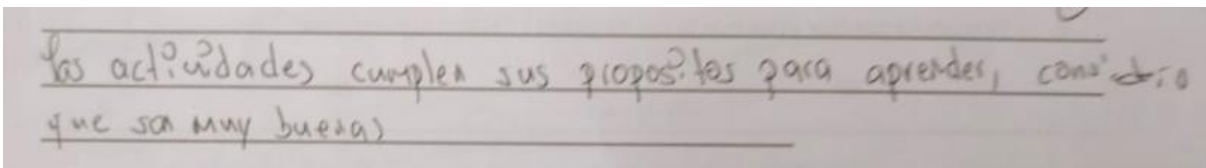 las actividades cumplen sus propositos para aprender,
que son muy buenas